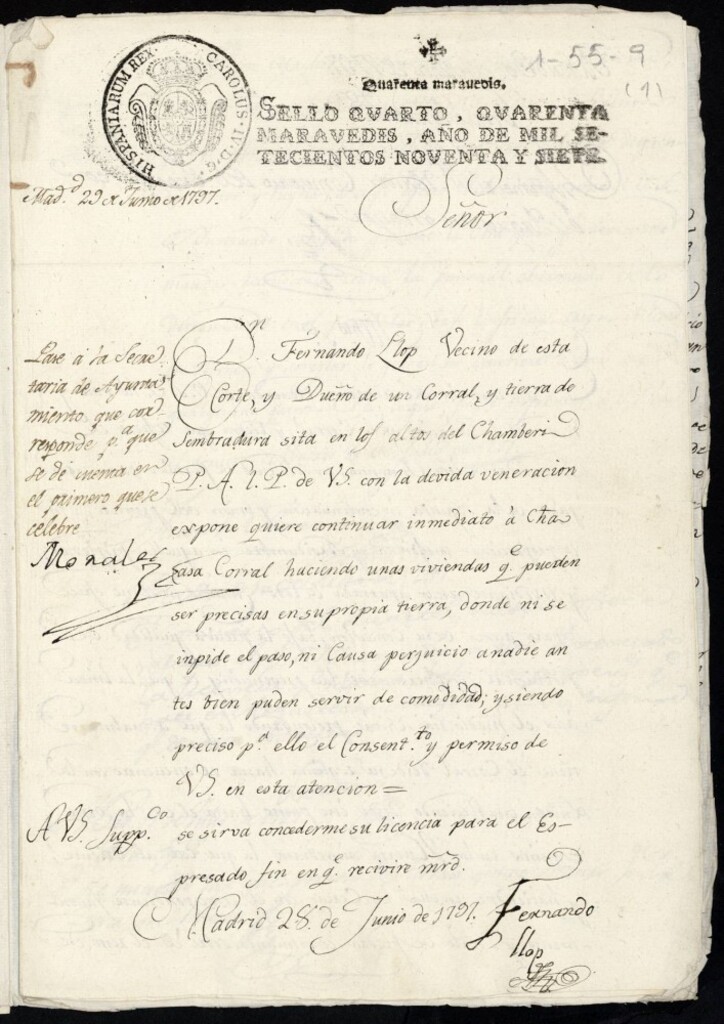 HISPANIARUM REX
CAROLUS·IV·D·G·
1-55-9
(1)
Quarenta marauedis.
SELLO QVARTO, QVARENTA
MARAVEDIS, AÑO DE MIL SE-
TECIENTOS NOVENTA Y SIETE.
Mad.d 29 de Junio de 1797.
Señor
Pase à la Secre-
taria de Ayunta-
miento que cor-
responde p.a que
se dé cuenta en
el primero que se
celebre
Morales
D.n Fernando Llop Vecino de esta
Corte, y Dueño de un Corral, y tierra de
Sembradura sita en los altos del Chamberi
P. A. l. P. de VS. con la devida veneracion
expone quiere continuar inmediato à Cha
casa Corral haciendo unas viviendas q.e pueden
ser precisas en su propia tierra, donde ni se
inpide el paso, ni Causa perjuicio a nadie an
tes bien puden servir de comodidad; y siendo
preciso p.a ello el Consent.to y permiso de
VS. en esta atencion =
A VS. Supp.co se sirva concederme su licencia para el Es-
presado fin en q.e recivire mrd.
Madrid 28. de Junio de 1797. Fernando
Llop